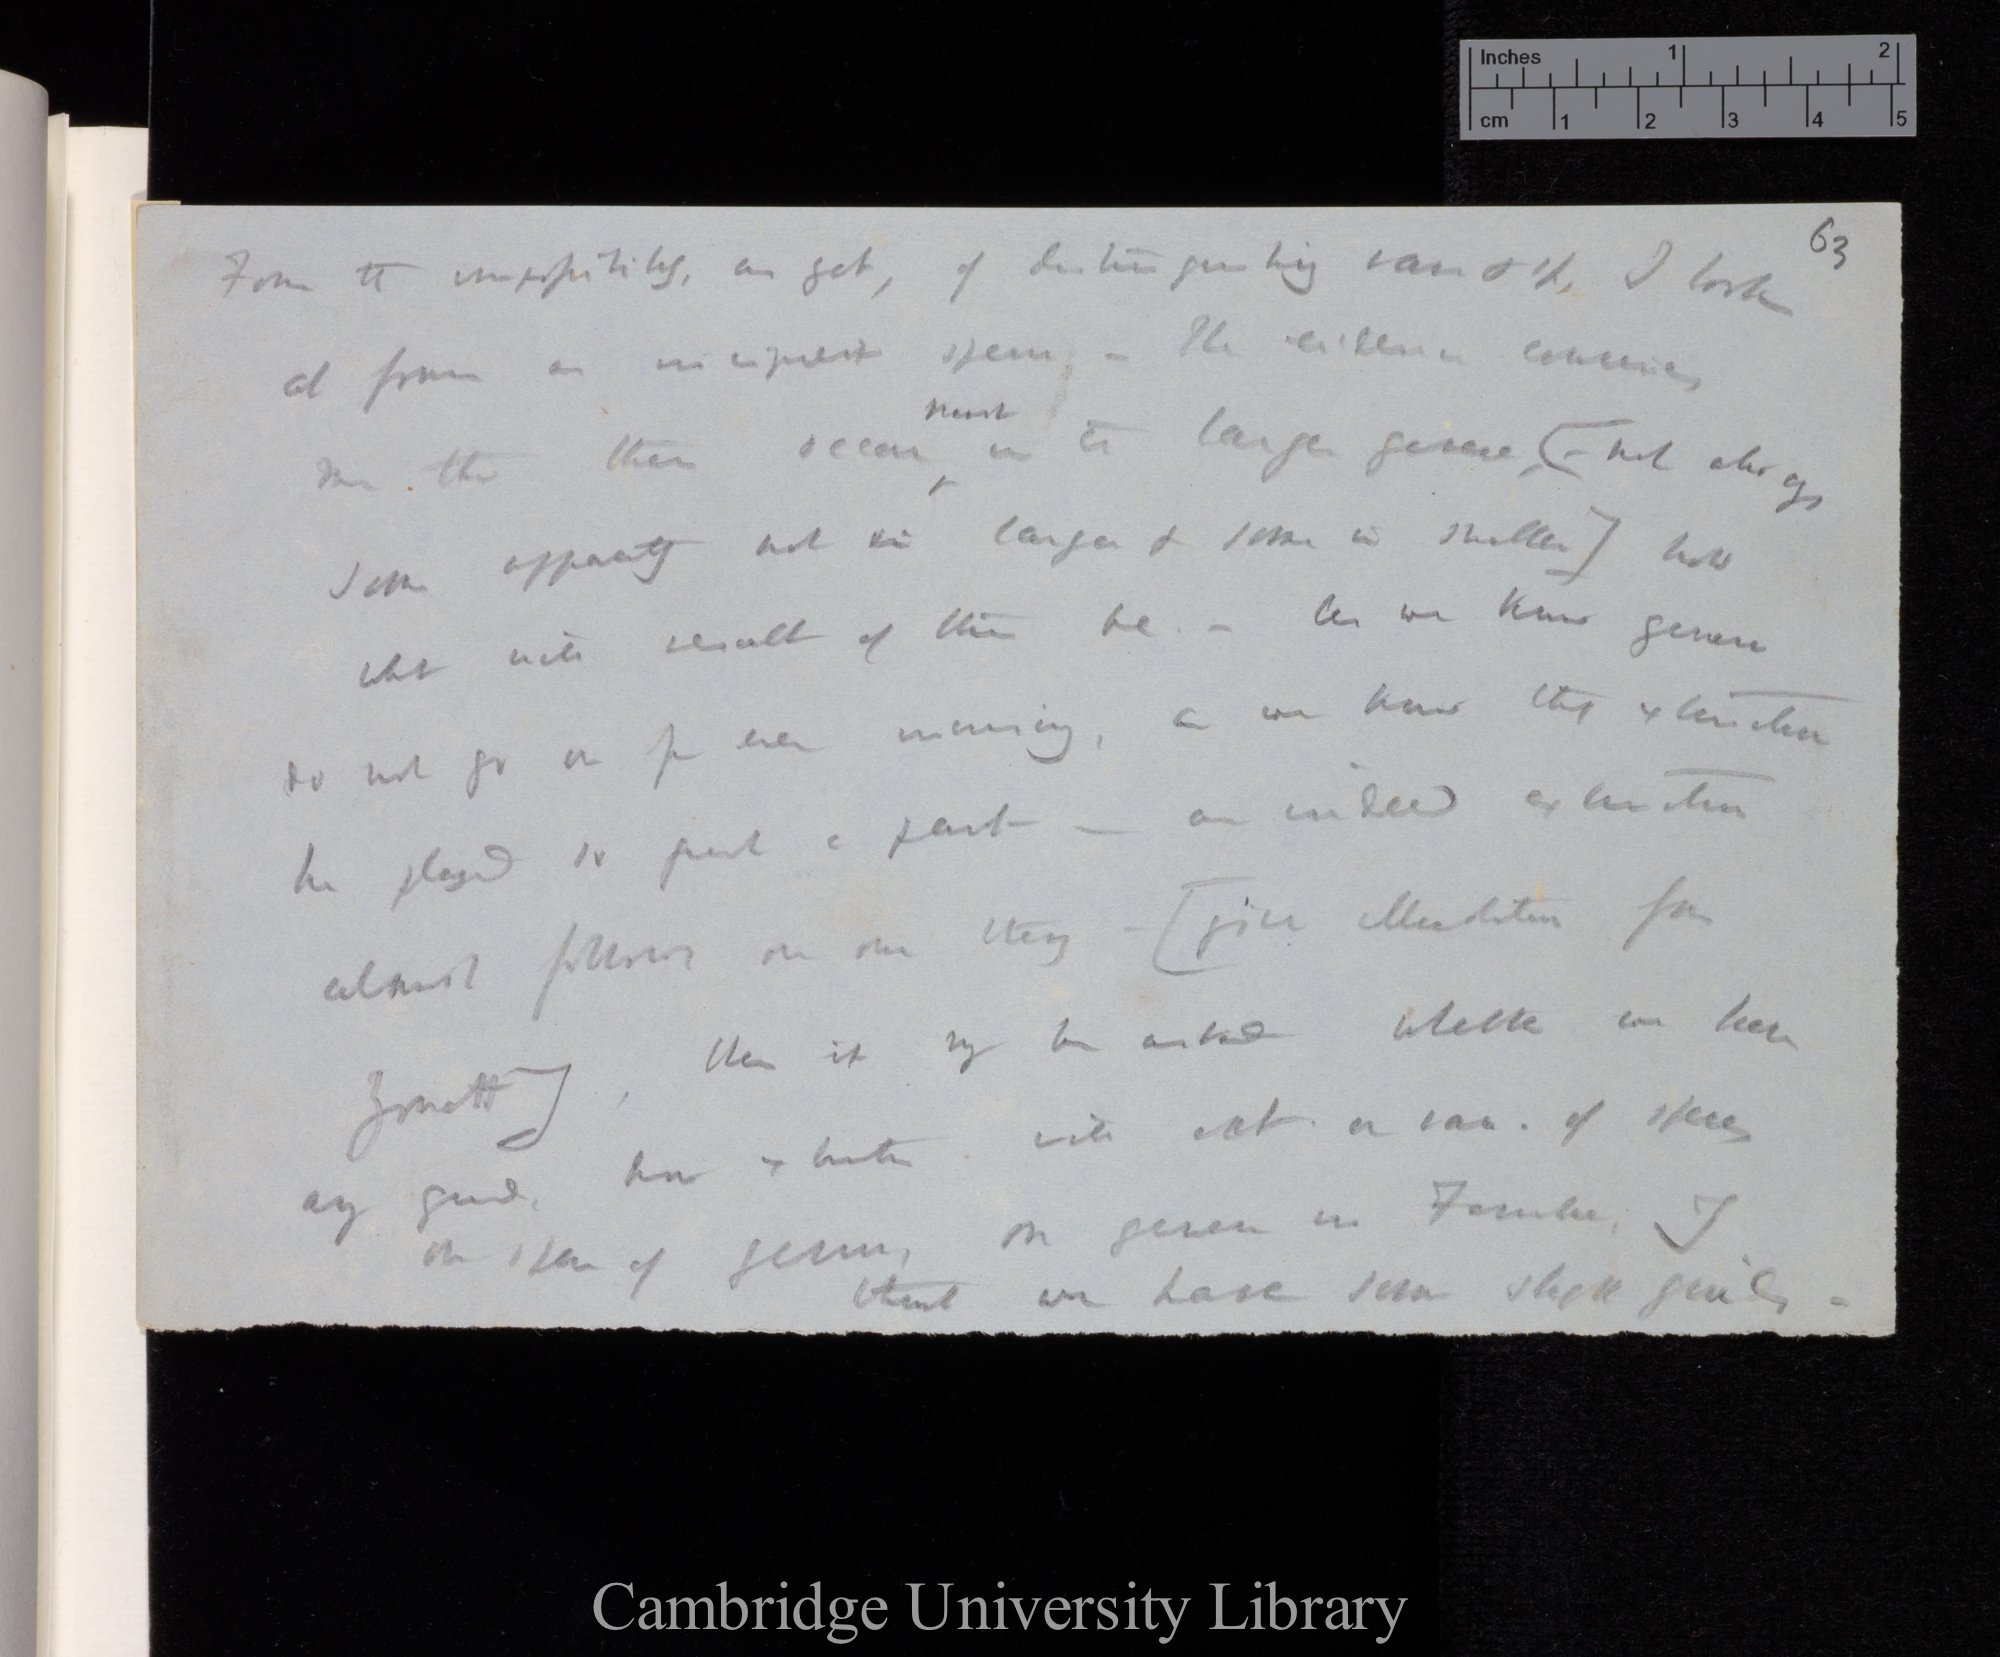 Inches 1 2
cm 1 2 3 4 5
63
From the impossibility, as yet, of distinguishing vars & sp, I look
at former as incipient species, – The evidence convinces
me that these occur in the larger genera, [– not always
most
some apparently not in larger & some in smaller] now
what will result of this be. – As we know genera
do not go on for ever increasing, as we know that extinction
has played so great a part – as indeed extinction
almost follows on our theory – [give illustration from
], then it may be asked whether we have
any guide, how extinction will act on vars. of species
on species of genus, or genera in Families, I
think we have some slight guide, –
Cambridge University Library